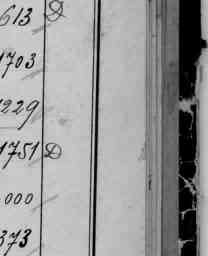 613 D
1703
1229
1751 D
000
373